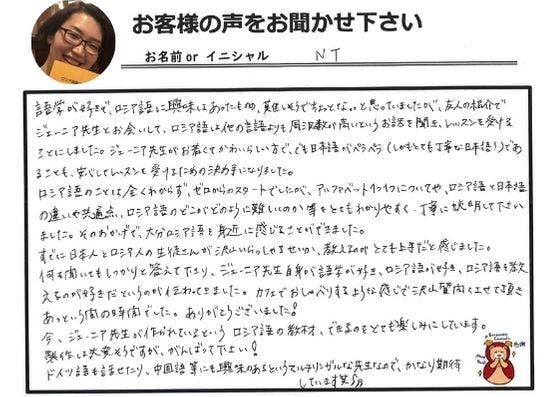 お客様の声をお聞かせ下さい
お名前 or イニシャル NT
語学が好きで、ロシア語に興味はあったものの、難しそうでちょっとな。。と思っていましたが、友人の紹介で
ジェーニア先生とお会いして、ロシア語は他の言語よりも周波数が高いというお話を聞き、レッスンを受ける
ことにしました。ジェーニア先生がお若くてかわいらしい方で、でも日本語がペラペラ(しかもとても丁寧な日本語!)であ
ることも、安心してレッスンを受けるための決め手になりました。
ロシア語のことは全くわからず、ゼロからのスタートでしたが、アルファベット1つ1つについてや、ロシア語と日本語
の違いや共通点、ロシア語のどこがどのように難しいのか等をとてもわかりやすく、丁寧に説明して下さい
ました。そのおかげで、大分ロシア語を身近に感じることができました。
すでに日本人とロシア人の生徒さんが沢山いらっしゃるせいか、教えるのがとても上手だと感じました。
何を聞いてもしっかりと答えて下さり、ジェーニア先生自身が語学が好き、ロシア語が好き、ロシア語を教
えるのが好きだというのが伝わってきました。カフェでおしゃべりするような感じで沢山質問くさせて頂き
あっという間の時間でした。ありがとうございました!
今、ジェーニア先生が作られているという ロシア語の教材、できるのをとても楽しみにしています。
製作は大変そうですが、がんばって下さい!
ドイツ語も話せたり、中国語等にも興味のあるというマルチリンガルな先生なので、かなり期待
しています笑